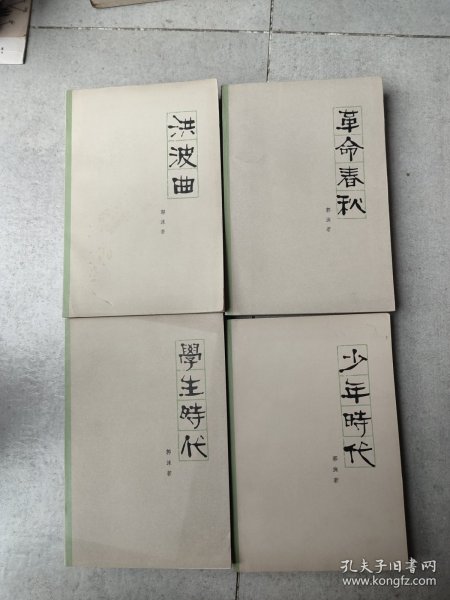 洪波曲
郭沫若
革命春秋
郭沫若
學生時代
郭沫若
少年時代
郭沫若
孔夫子旧书网
www.kongfz.com